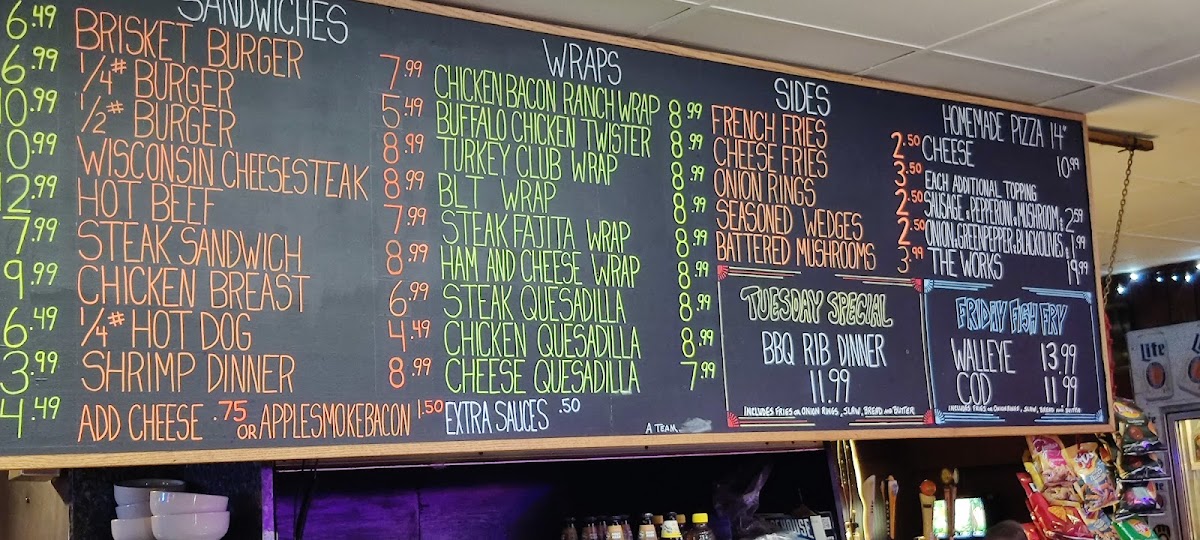 6.49
6.99
10.99
0.99
12.99
7.99
9.99
6.49
3.99
4.49
SANDWICHES
BRISKET BURGER 7.99
1/4# BURGER 5.49
1/2# BURGER 8.99
WISCONSIN CHEESESTEAK 8.99
HOT BEEF 7.99
STEAK SANDWICH 8.99
CHICKEN BREAST 6.99
1/4# HOT DOG 4.49
SHRIMP DINNER 8.99
ADD CHEESE .75 OR APPLESMOKEBACON 1.50
WRAPS
CHICKEN BACON RANCH WRAP 8.99
BUFFALO CHICKEN TWISTER 8.99
TURKEY CLUB WRAP 8.99
BLT WRAP 8.99
STEAK FAJITA WRAP 8.99
HAM AND CHEESE WRAP 8.99
STEAK QUESADILLA 8.99
CHICKEN QUESADILLA 8.99
CHEESE QUESADILLA 7.99
EXTRA SAUCES .50
SIDES
FRENCH FRIES 2.50
CHEESE FRIES 3.50
ONION RINGS 2.50
SEASONED WEDGES 2.50
BATTERED MUSHROOMS 3.99
TUESDAY SPECIAL
BBQ RIB DINNER
11.99
INCLUDES FRIES OR ONION RINGS, SLAW, BREAD AND BUTTER
A TEAM
HOMEMADE PIZZA 14"
CHEESE 10.99
EACH ADDITIONAL TOPPING
SAUSAGE, PEPPERONI, MUSHROOM 2.59
ONION, GREENPEPPER, BLACKOLIVES 1.99
THE WORKS 19.99
FRIDAY FISH FRY
WALLEYE 13.99
COD 11.99
INCLUDES FRIES OR ONION RINGS, SLAW, BREAD AND BUTTER
Lite
Lite